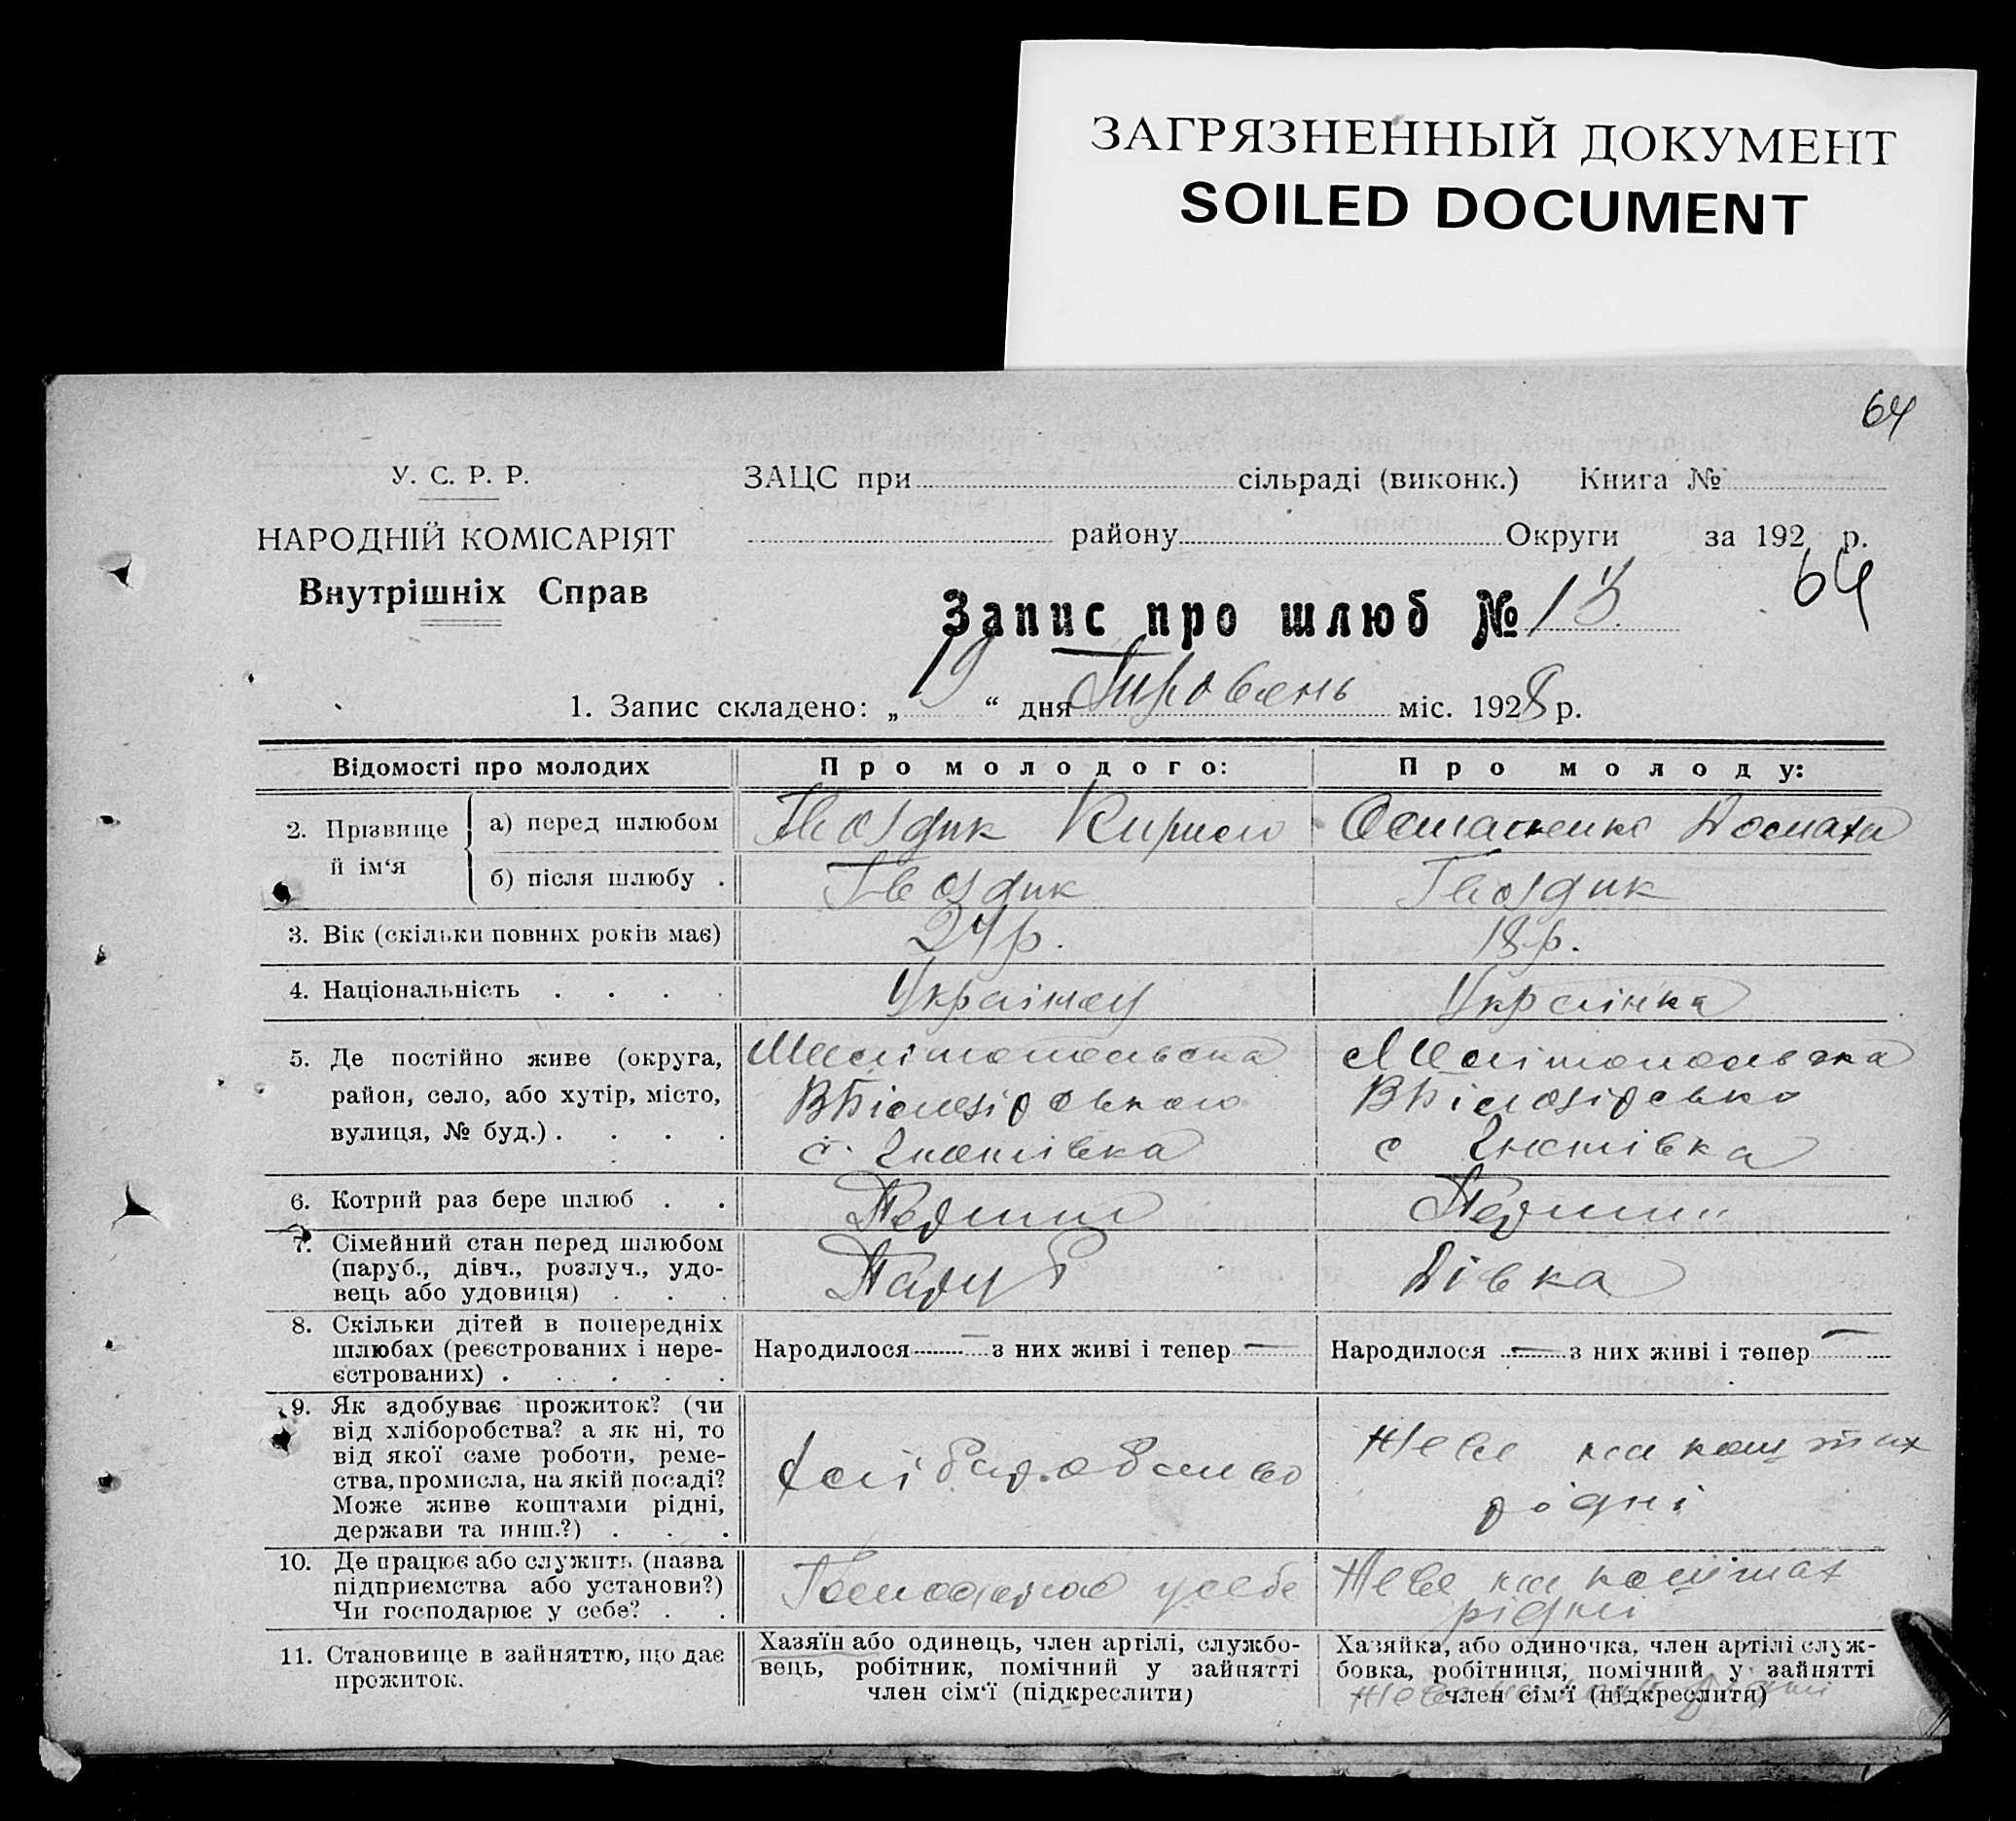 ЗАГРЯЗНЕННЫЙ ДОКУМЕНТ
SOILED DOCUMENT
64
У. С. Р. Р.
НАРОДНІЙ КОМІСАРІЯТ
Внутрішніх Справ
ЗАЦС при сільраді (виконк.) Книга №
району Округи за 192 р.
64
Запис про шлюб № 13
1. Запис складено: „ 19 “ дня міс. 1928 р.
Відомості про молодих Про молодого: Про молоду:
2. Прізвище й ім‘я
а) перед шлюбом Гвоздик Кирило Остапенко
б) після шлюбу . Гвоздик Гвоздик
3. Вік (скільки повних років має) 24 р. 18 р.
4. Національність . . . . Українец Українка
5. Де постійно живе (округа, Мелітопольська Мелітопольська
район, село, або хутір, місто, ВБілозірського ВБілозірсько
вулиця, № буд.) . . . . с. Гнатівка с Гнатівка
6. Котрий раз бере шлюб . . Перший Перший
7. Сімейний стан перед шлюбом
(паруб., дівч., розлуч., удо-
вець або удовиця) . . . Паруб Дівка
8. Скільки дітей в попередніх
шлюбах (реєстрованих і нере-
єстрованих) . . . . .
Народилося — з них живі і тепер — Народилося — з них живі і тепер —
9. Як здобуває прожиток? (чи
від хліборобства? а як ні, то
від якої саме роботи, реме-
ства, промисла, на якій посаді?
Може живе коштами рідні,
держави та инш.?) . . .
Хліборобство
Живе на коштах
рідні
10. Де працює або служить (назва
підприємства або установи?)
Чи господарює у себе? . .
у себе
Живе на коштах
рідні
11. Становище в зайняттю, що дає
прожиток.
Хазяїн або одинець, член артілі, службо-
вець, робітник, помічний у зайнятті
член сім‘ї (підкреслити)
Хазяйка, або одиночка, член артілі служ-
бовка, робітниця, помічний у зайнятті
член сім‘ї (підкреслити)